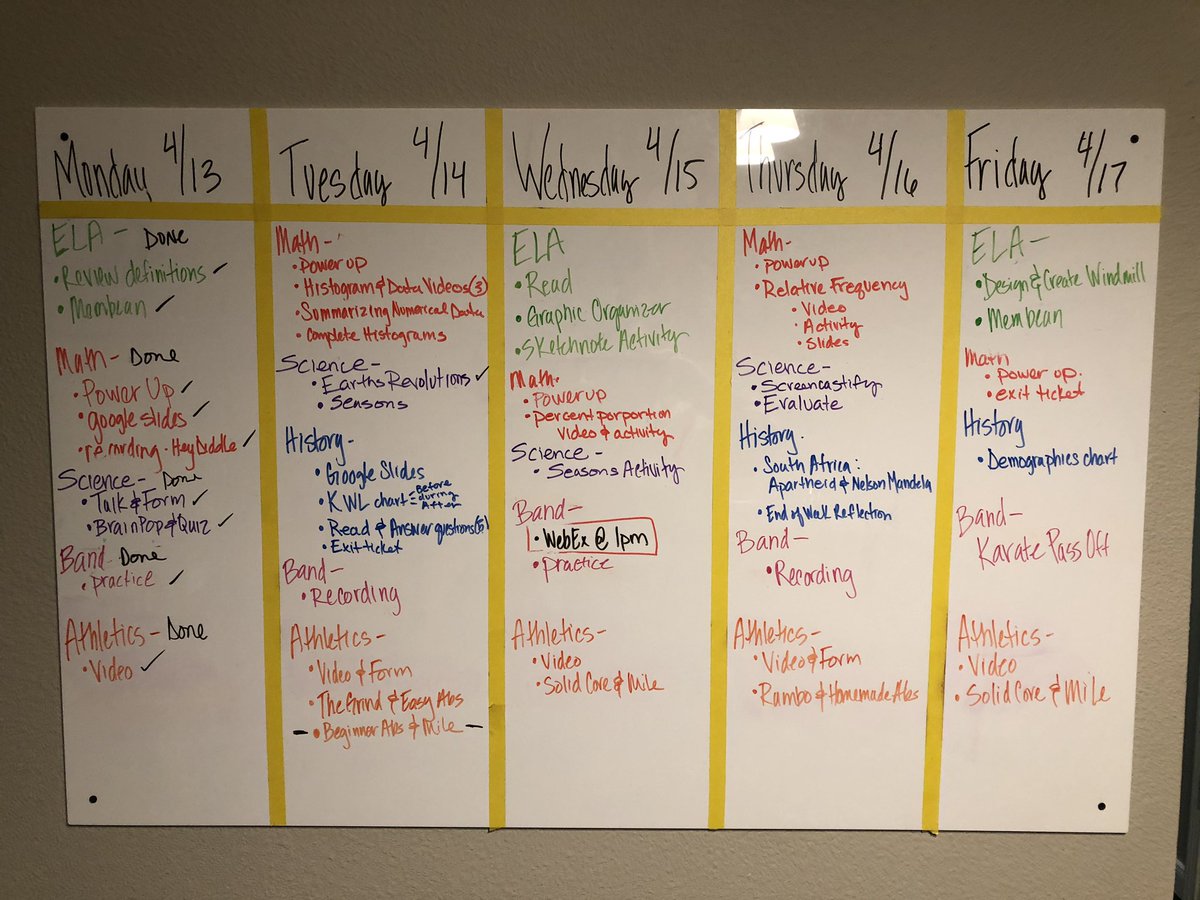 Monday 4/13
ELA - DONE
• Review definitions ✓
• Membean ✓
Math - Done
• Power Up ✓
• google slides ✓
• recording - Hey Diddle ✓
Science - Done
• Talk & Form ✓
• BrainPop & Quiz ✓
Band - Done
• practice ✓
Athletics - Done
• Video ✓
Tuesday 4/14
Math -
• Power up
• Histogram & Data Videos (3)
• Summarizing Numerical Data
• Complete Histograms
Science -
• Earths Revolutions ✓
• Seasons
History -
• Google Slides
• KWL chart = Before
during
After
• Read & Answer questions (5)
• Exit ticket
Band -
• Recording
Athletics -
• Video & Form
• The Grind & Easy Abs
- • Beginner Abs & Mile -
Wednesday 4/15
ELA
• Read
• Graphic Organizer
• Sketchnote Activity
Math -
• Power up
• percent porportion
video & activity
Science -
• Seasons Activity
Band -
• WebEx @ 1pm
• practice
Athletics -
• Video
• Solid Core & Mile
Thursday 4/16
Math -
• Power up
• Relative Frequency
• Video
• Activity
• Slides
Science -
• Screencastify
• Evaluate
History -
• South Africa:
Apartheid & Nelson Mandela
• End of Week Reflection
Band -
• Recording
Athletics -
• Video & Form
• Rambo & Homemade Abs
Friday 4/17
ELA -
• Design & Create Windmill
• Membean
Math
• power up.
• exit ticket
History
• Demographics chart
Band -
Karate Pass Off
Athletics -
• Video
• Solid Core & Mile